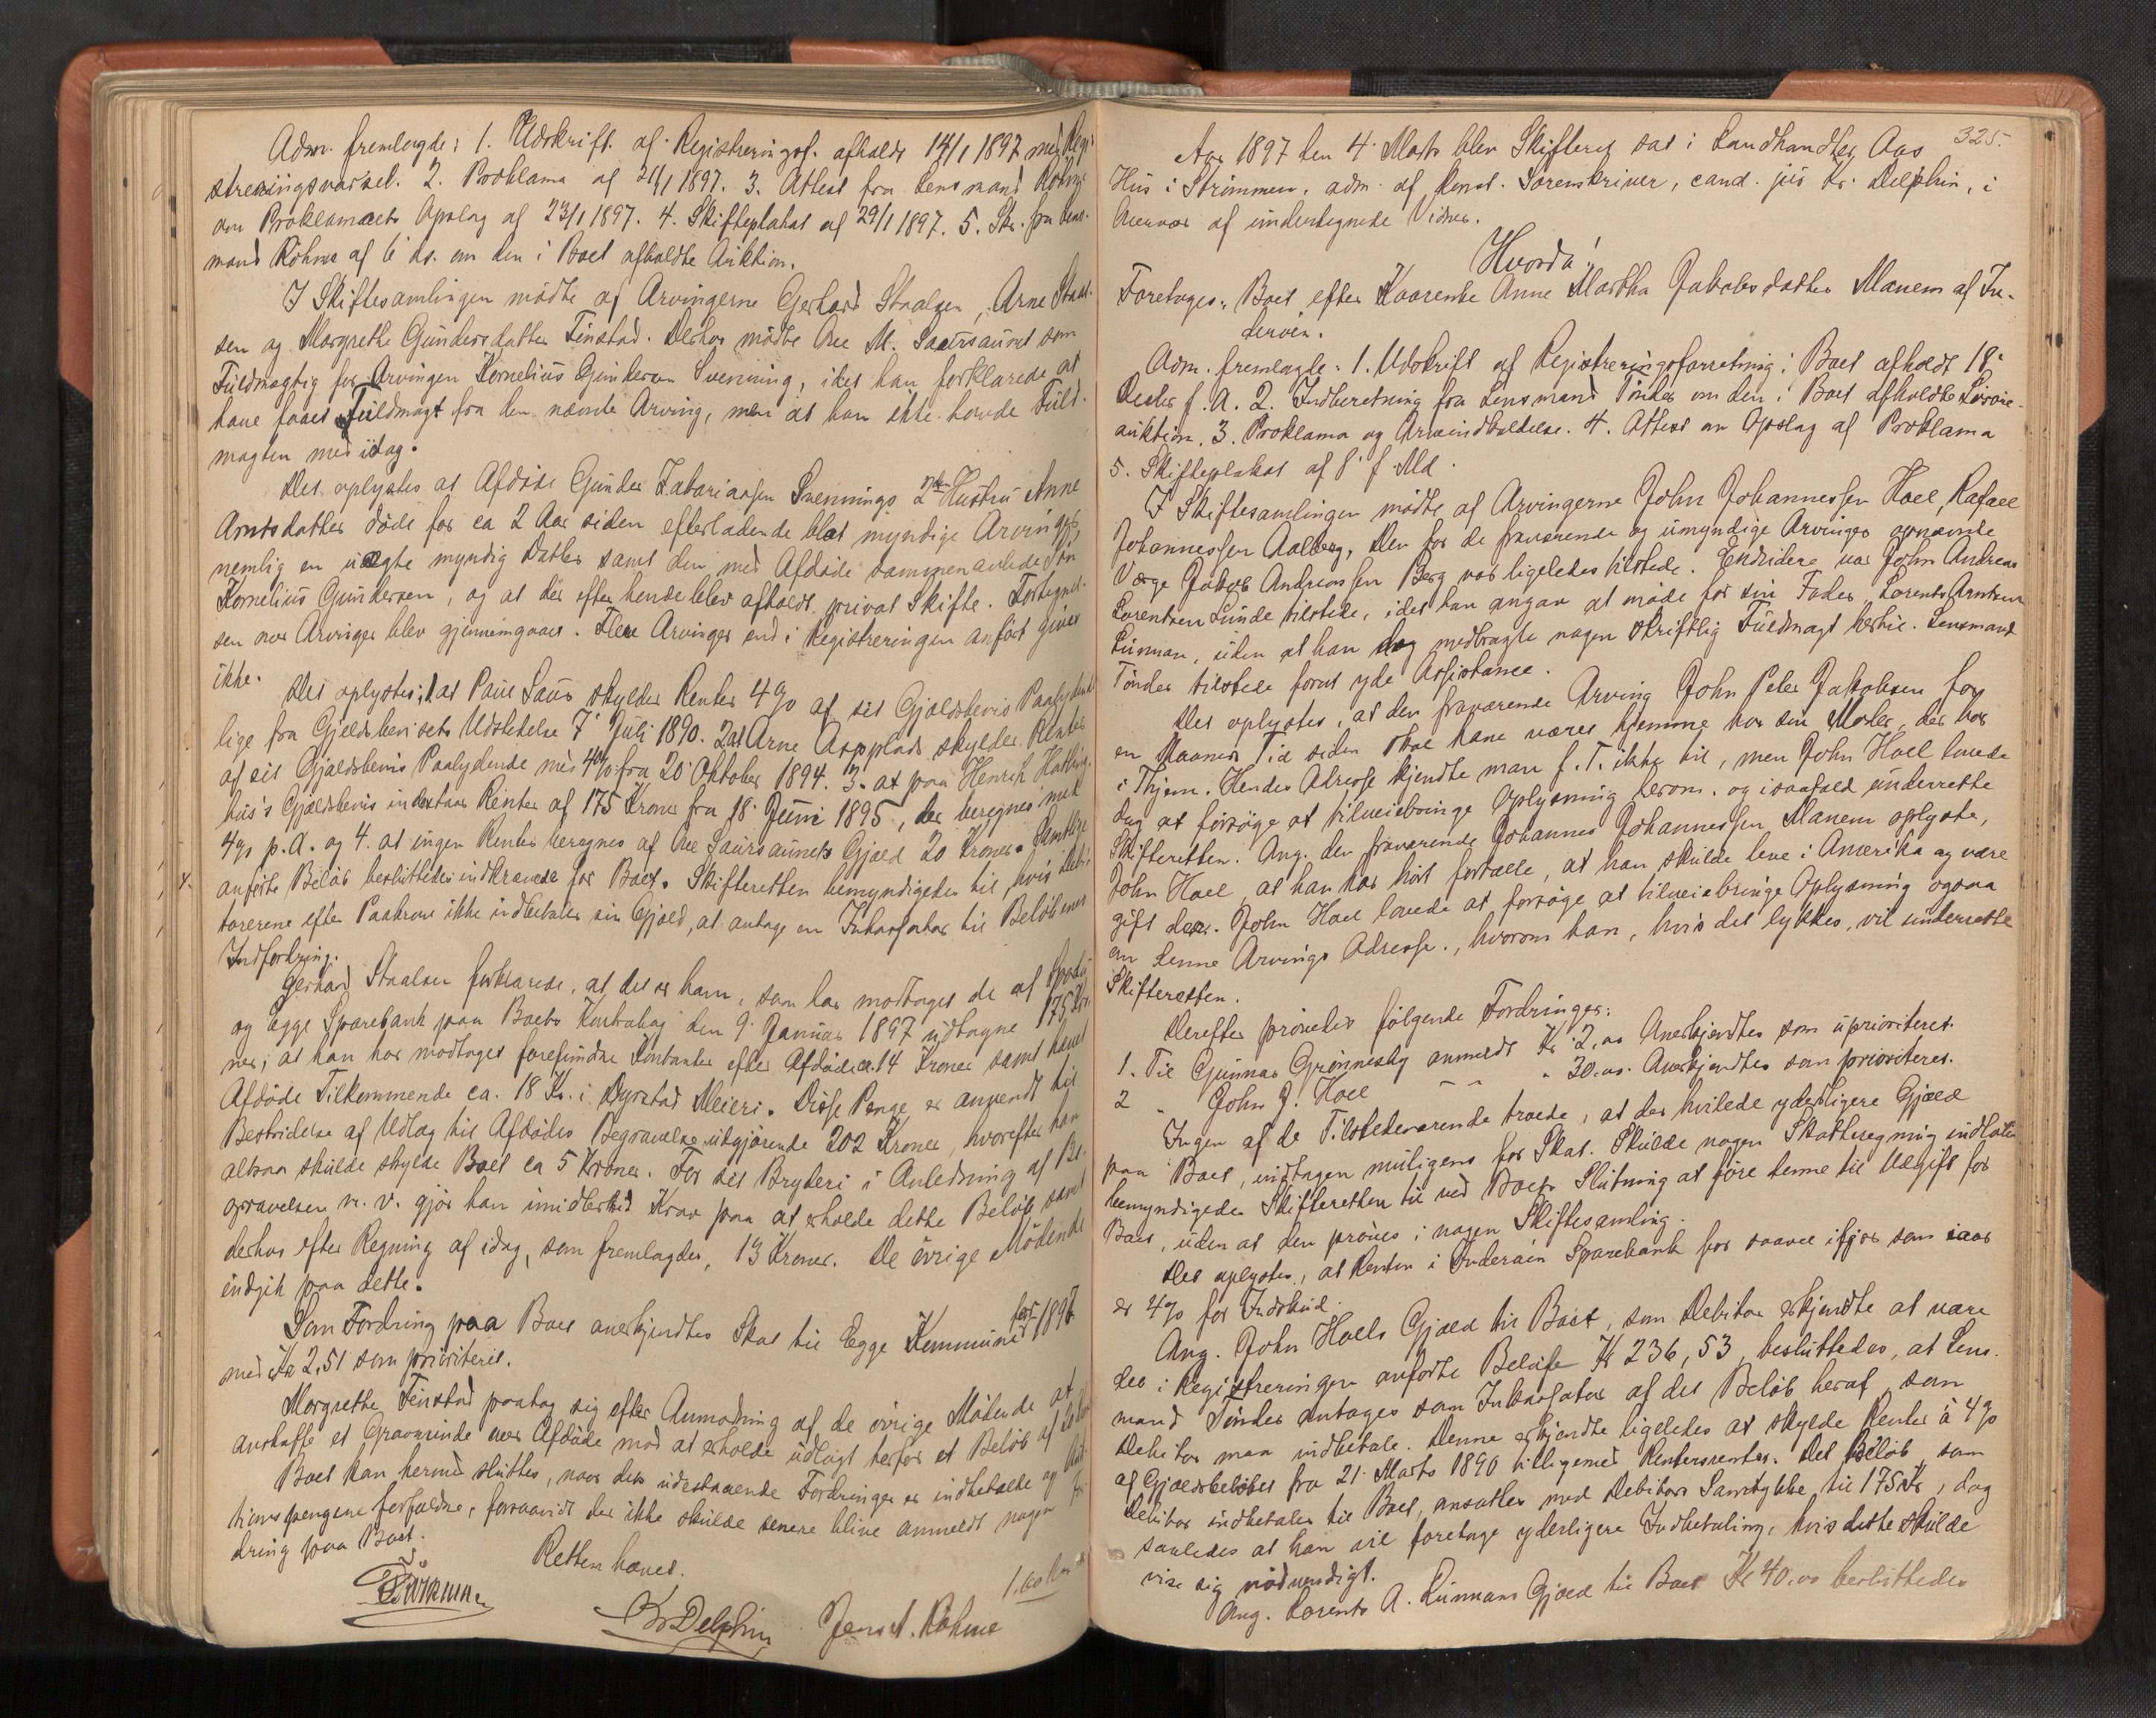 Adm. fremlagde: 1. Udskrift af Registreringsf. afholdt 14/1 1897 med Regi-
streringsvarsel. 2. Proklama af 21/1 1897. 3. Attest fra Lensmand Röhme
om Proklamaets Opslag af 23/1 1897. 4. Skifteplakat af 29/1 1897. 5. Skr. fra Lens-
mand Röhme af 6 ds. om den i Boet afholdte Auktion.
I Skiftesamlingen mødte af Arvingerne Gerhard Staalsen, Arne Staal-
sen og Margrethe Gundersdatter Finstad. Derhos mødte Ole M. Saursaunet som
Fuldmægtig for Arvingen Kornelius Gundersen Svenning, idet han forklarede at
have faaet Fuldmagt fra den nævnte Arving, men at han ikke havde Fuld-
magten med idag.
Det oplystes at Afdøde Gunder Zakariassen Svennings 2den Hustru Anne
Arntsdatter døde for ca 2 Aar siden efterladende blot myndige Arvinger,
nemlig en uægte myndig Datter samt den med Afdøde sammenavlede Søn
Kornelius Gundersen, og at der efter hende blev afholdt privat Skifte. Fortegnel-
sen over Arvinger blev gjennemgaaet. Flere Arvinger end i Registreringen anført gives
ikke.
Det oplystes: 1. at Paul Saur skylder Renter 4% af sit Gjældsbevis Paalydende
lige fra Gjældsbevisets Udstedelse 7' Juli 1890. 2. at Arne Aspplads skylder Renter
af sit Gjældsbevis Paalydende med 4% fra 20' Oktober 1894. 3. at paa Henrik
hus's Gjældsbevis indestaar Renter af 175 Kroner fra 18' Juni 1895, der beregnes med
4% p.A. og 4. at ingen Renter beregnes af Ole Saursaunets Gjæld 20 Kroner. Samtlige
anførte Beløb besluttedes indkrævede for Boet. Skifteretten bemyndigedes til, hvis Debi-
torerne efter Paakrav ikke indbetaler sin Gjæld, at antage en Inkassator til Beløbenes
Indfordring.
Gerhard Staalsen forklarede, at det er ham, som har modtaget de af Sparbu
og Egge Sparebank paa Boets Kontrabog den 9' Januar 1897 udtagne 175 Kro-
ner; at han har modtaget forefundne Kontanter efter Afdøde ca. 14 Kroner samt hævet
Afdøde Tilkommende ca. 18 Kr. i Dyrstad Meieri. Disse Penge er anvendt til
Bestridelse af Udlæg til Afdødes Begravelse udgjørende 202 Kroner, hvorefter han
altsaa skulde skylde Boet ca 5 Kroner. For sit Bryderi i Anledning af Be-
gravelsen m. v. gjør han imidlertid Krav paa at erholde dette Beløb samt
derhos efter Regning af idag, som fremlagdes, 13 Kroner. De øvrige Mødende
indgik paa dette.
Som Fordring paa Boet anerkjendtes Skat til Egge Kommune for 1897
med Kr 2,51 som prioriteret.
Margrethe Finstad paatog sig efter Anmodning af de øvrige Mødende at
anskaffe et Gravminde over Afdøde mod at erholde udlagt herfor et Beløb af
Boet kan hermed sluttes, naar dets udestaaende Fordringer er indbetalte og Auk-
tionspengene forfaldne, forsaavidt der ikke skulde senere blive anmeldt nogen For-
dring paa Boet.
Retten hævet.
Kr Delphin Jens A. Röhme
325.
Aar 1897 den 4' Marts blev Skifteret sat i Landhandler Aas
Hus i Strømmen, adm. af konst. Sorenskriver, cand. jur Kr. Delphin, i
Overvær af undertegnede Vidner.
Hvorda!
Foretages: Boet efter Kaarenke Anne Martha Jakobsdatter Manem af In-
derøen.
Adm. fremlagde: 1. Udskrift af Registreringsforretning i Boet afholdt 18'
Decbr f. A. 2. Indberetning fra Lensmand Tönder om den i Boet afholdte Løsøre-
auktion. 3. Proklama og Arveindkaldelse. 4. Attest om Opslag af Proklama
5. Skifteplakat af 8' f. Md.
I Skiftesamlingen mødte af Arvingerne John Johannessen Hoel, Rafael
Johannessen Aalberg. Den for de fraværende og umyndige Arvinger opnævnte
Værge Jakob Andreassen Berg var ligeledes tilstede. Endvidere var John Andreas
Lorentsen Lunde tilstede, idet han angav at møde for sin Fader, Lorents Arntsen
Lunman, uden at han dog medbragte nogen skriftlig Fuldmagt hertil. Lensmand
Tönder tilstede forat yde Assistance.
Det oplystes, at den fraværende Arving John Peter Jakobsen for
en Maaneds Tid siden skal have været hjemme hos sin Moder, der bor
i Thjem. Hendes Adresse kjendte man f. T. ikke til, men John Hoel lovede
dog at forsøge at tilveiebringe Oplysning herom, og isaafald underrette
Skifteretten. Ang. den fraværende Johannes Johannessen Manem oplyste
John Hoel, at han har hört fortælle, at han skulde leve i Amerika og være
gift der. John Hoel lovede at forsøge at tilveiebringe Oplysning ogsaa
om denne Arvings Adresse, hvorom han, hvis det lykkes, vil underrette
Skifteretten.
Derefter prövedes følgende Fordringer:
1. Til Gunnar Grønnesby anmeldt Kr 2,00 Anerkjendtes som uprioriteret.
2 " John J. Hoel - - " 30,00. Anerkjendtes som prioriteret.
Ingen af de Tilstedeværende troede, at der hvilede yderligere Gjæld
paa Boet, undtagen muligens for Skat. Skulde nogen Skatteregning indløbe
bemyndigedes Skifteretten til ved Boets Slutning at føre denne til Udgift for
Boet, uden at den prøves i nogen Skiftesamling.
Det oplystes, at Renten i Inderøens Sparebank for saavel ifjor som iaar
er 4% for Indskud.
Ang. John Hoels Gjæld til Boet, som Debitor erkjendte at være
det i Registreringen anførte Beløb Kr 236,53, besluttedes, at Lens-
mand Tönder antages som Inkassator af det Beløb heraf, som
Debitor maa indbetale. Denne erkjendte ligeledes at skylde Renter à 4%
af Gjældsbeløbet fra 21' Marts 1890 tilligemed Rentersrenter. Det Beløb, som
Debitor indbetaler til Boet, ansattes med Debitors Samtykke til 175 Kr, dog
saaledes at han vil foretage yderligere Indbetaling, hvis dette skulde
vise sig nødvendigt.
Ang. Lorents A. Lunmans Gjæld til Boet Kr 40,00 besluttedes